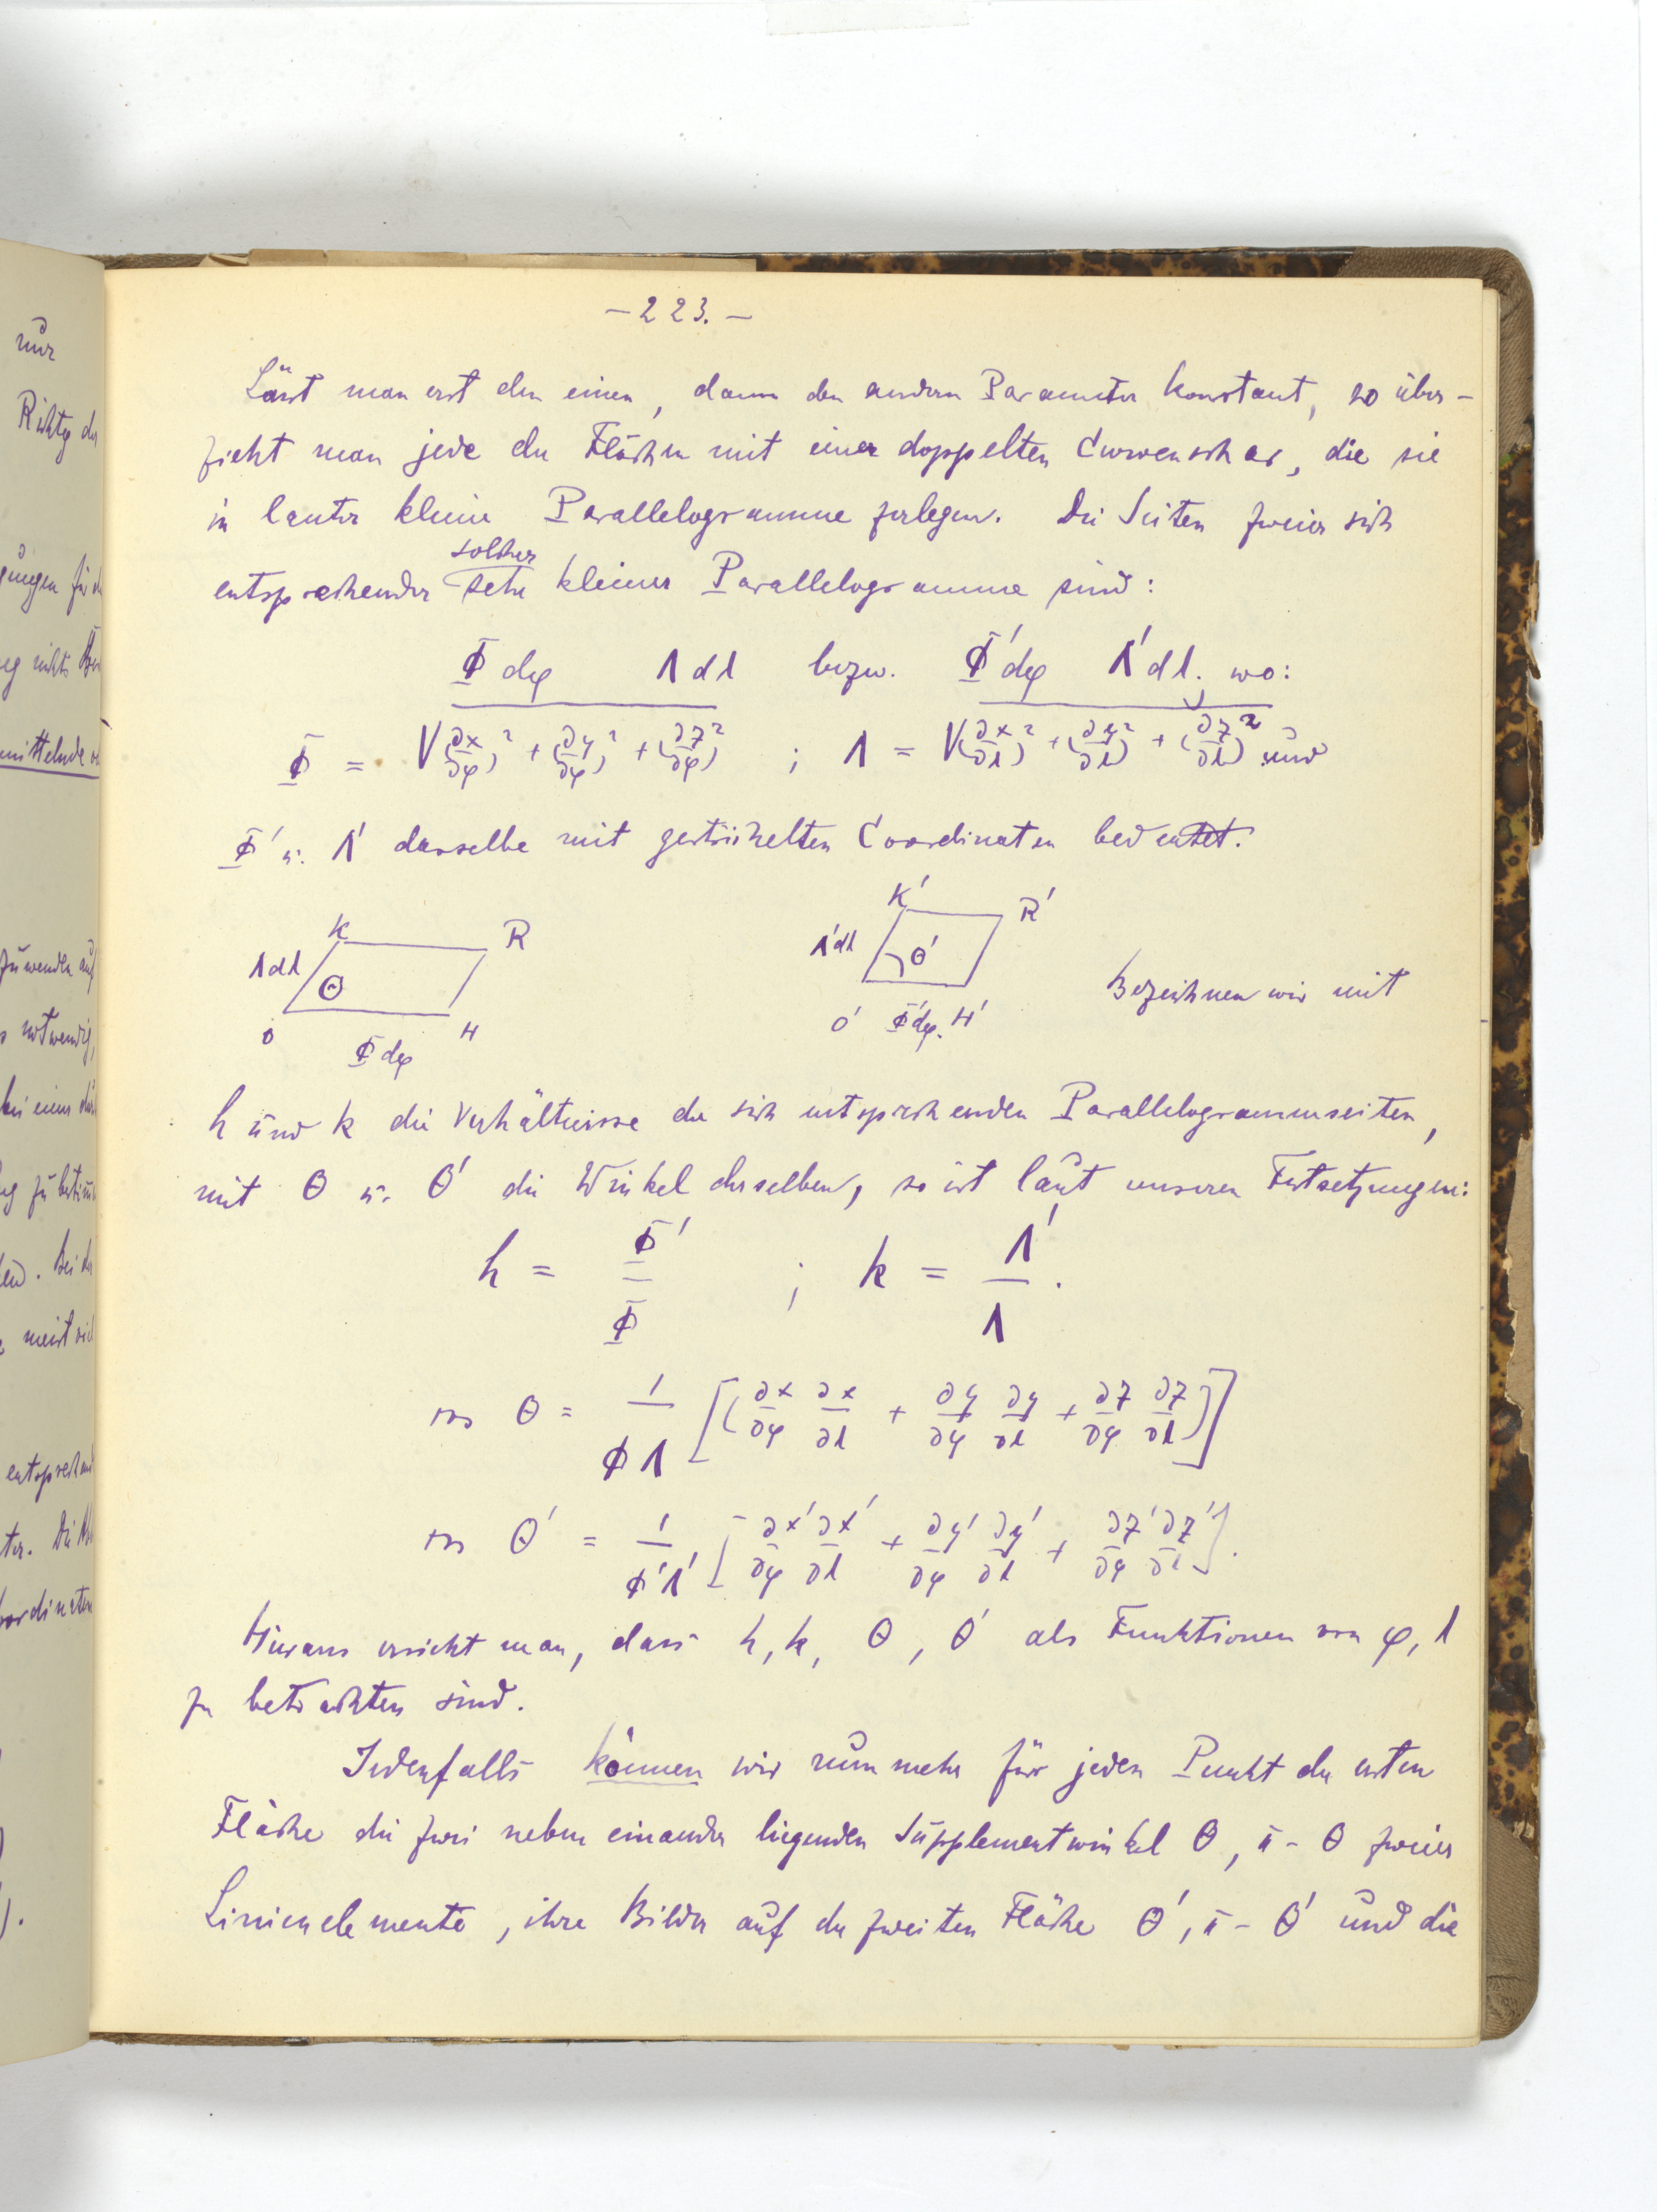 nur
Richtg der
mittelnde
zuwenden auf
notwendig,
meist
entsprechend
ter. Die
oordinaten
– 223. –
Lässt man erst den einen, dann den andern Parameter konstant, so über-
zieht man jede der Flächen mit einer doppelten Curvenschar, die sie
in lauter kleine Parallelogramme zerlegen. Die Seiten zweier sich
solcher
entsprechender sehr kleiner Parallelogramme sind:
Φ dφ Λ dλ bezw. Φ' dφ Λ' dλ; wo:
Φ = √(∂x/∂φ)² + (∂y/∂φ)² + (∂z/∂φ)² ; Λ = √(∂x/∂λ)² + (∂y/∂λ)² + (∂z/∂λ)² und
Φ' u. Λ' dasselbe mit gestrichelten Coordinaten bedeutet.
K R K' R'
Λdλ Θ Λ'dλ Θ'
O Φdφ H O' Φ'dφ. H'
Bezeichnen wir mit
h und k die Verhältnisse der sich entsprechenden Parallelogrammseiten,
mit Θ u. Θ' die Winkel derselben, so ist laut unseren Festsetzungen:
h = Φ'/Φ ; k = Λ'/Λ .
cos Θ = 1/ΦΛ [(∂x/∂φ ∂x/∂λ + ∂y/∂φ ∂y/∂λ + ∂z/∂φ ∂z/∂λ)]
cos Θ' = 1/Φ'Λ' [∂x'/∂φ ∂x'/∂λ + ∂y'/∂φ ∂y'/∂λ + ∂z'/∂φ ∂z'/∂λ].
Hieraus ersieht man, dass h, k, Θ, Θ' als Funktionen von φ, λ
zu betrachten sind.
Jedenfalls können wir nunmehr für jeden Punkt der ersten
Fläche die zwei neben einander liegenden Supplementwinkel Θ, π - Θ zweier
Linienelemente, ihre Bilder auf der zweiten Fläche Θ', π - Θ' und die